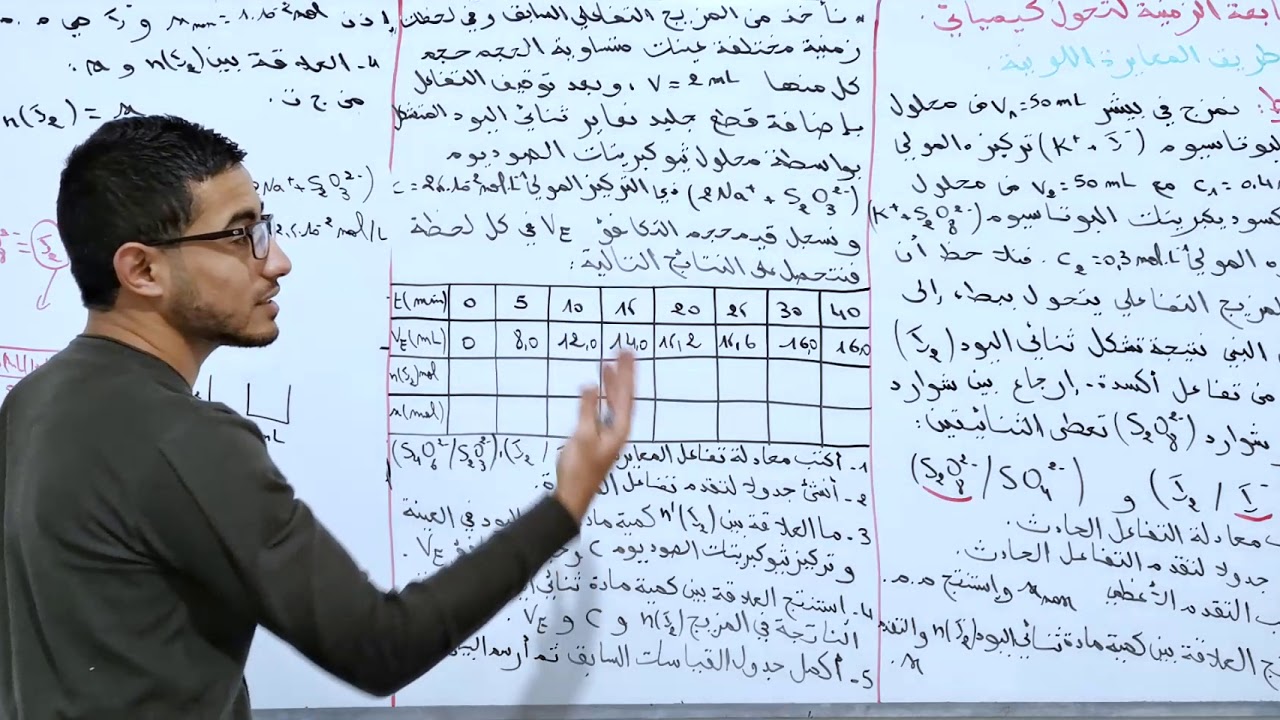 ابعة الزمنية لتحول كيميائي
طريق المعايرة اللونية.
نمزج في بيشر V₁=50mL من محلول
البوتاسيوم (K⁺+I⁻) تركيزه المولي
C₁=0.4 مع V₂=50mL من محلول
كسوديكبريتات البوتاسيوم (K⁺+S₂O₈²⁻)
ه المولي C₂=0,3mol.L⁻¹. فنلاحظ أن
لمزيج التفاعلي يتحول ببطء إلى
البني نتيجة تشكل ثنائي اليود (I₂)
من تفاعل أكسدة-إرجاع بين شوارد
شوارد (S₂O₈²⁻) تعطى الثنائيتين:
(I₂/I⁻) و (S₂O₈²⁻/SO₄²⁻)
ب معادلة التفاعل الحادث.
جدولا لتقدم التفاعل الحادث.
ب التقدم الأعظمي xmax وإستنتج م.م.
تج العلاقة بين كمية مادة ثنائي اليود n(I₂) والتقد
x.
نأخذ من المزيج التفاعلي السابق وفي لحظات
زمنية مختلفة عينات متساوية الحجم حجم
كل منها V=2mL، وبعد توقيف التفاعل
بإضافة قطع جليد نعاير ثنائي اليود المتشكل
بواسطة محلول ثيوكبريتات الصوديوم
(2Na⁺+S₂O₃²⁻) ذي التركيز المولي C=2,5.10⁻²mol.L⁻¹
ونسجل قيم حجم التكافؤ VE في كل لحظة
فنتحصل على النتائج التالية:
t(min) 0 5 10 15 20 25 30 40
VE(mL) 0 8,0 12,0 14,0 15,2 15,6 16,0 16,0
n(I₂)mol
x(mol)
1- أكتب معادلة تفاعل المعايرة I₂/ ), (S₄O₆²⁻/S₂O₃²⁻)
2- أنشئ جدولا لتقدم تفاعل
3- ما العلاقة بين n'(I₂) كمية ماد اليود في العينة
وتركيز ثيوكبريتات الصوديوم C و VE.
4- إستنتج العلاقة بين كمية مادة ثنائي
الناتجة في المزيج n(I₂) و C و VE.
5- أكمل جدول القياسات السابق ثم أرسم
إذن xmax=1.10⁻²mol و I⁻ هي م.م
4- العلاقة بين n(I₂) و x.
من ج ت.
n(I₂) = x
2Na⁺+S₂O₃²⁻)
2,5.10⁻²mol/L
I₂
mL